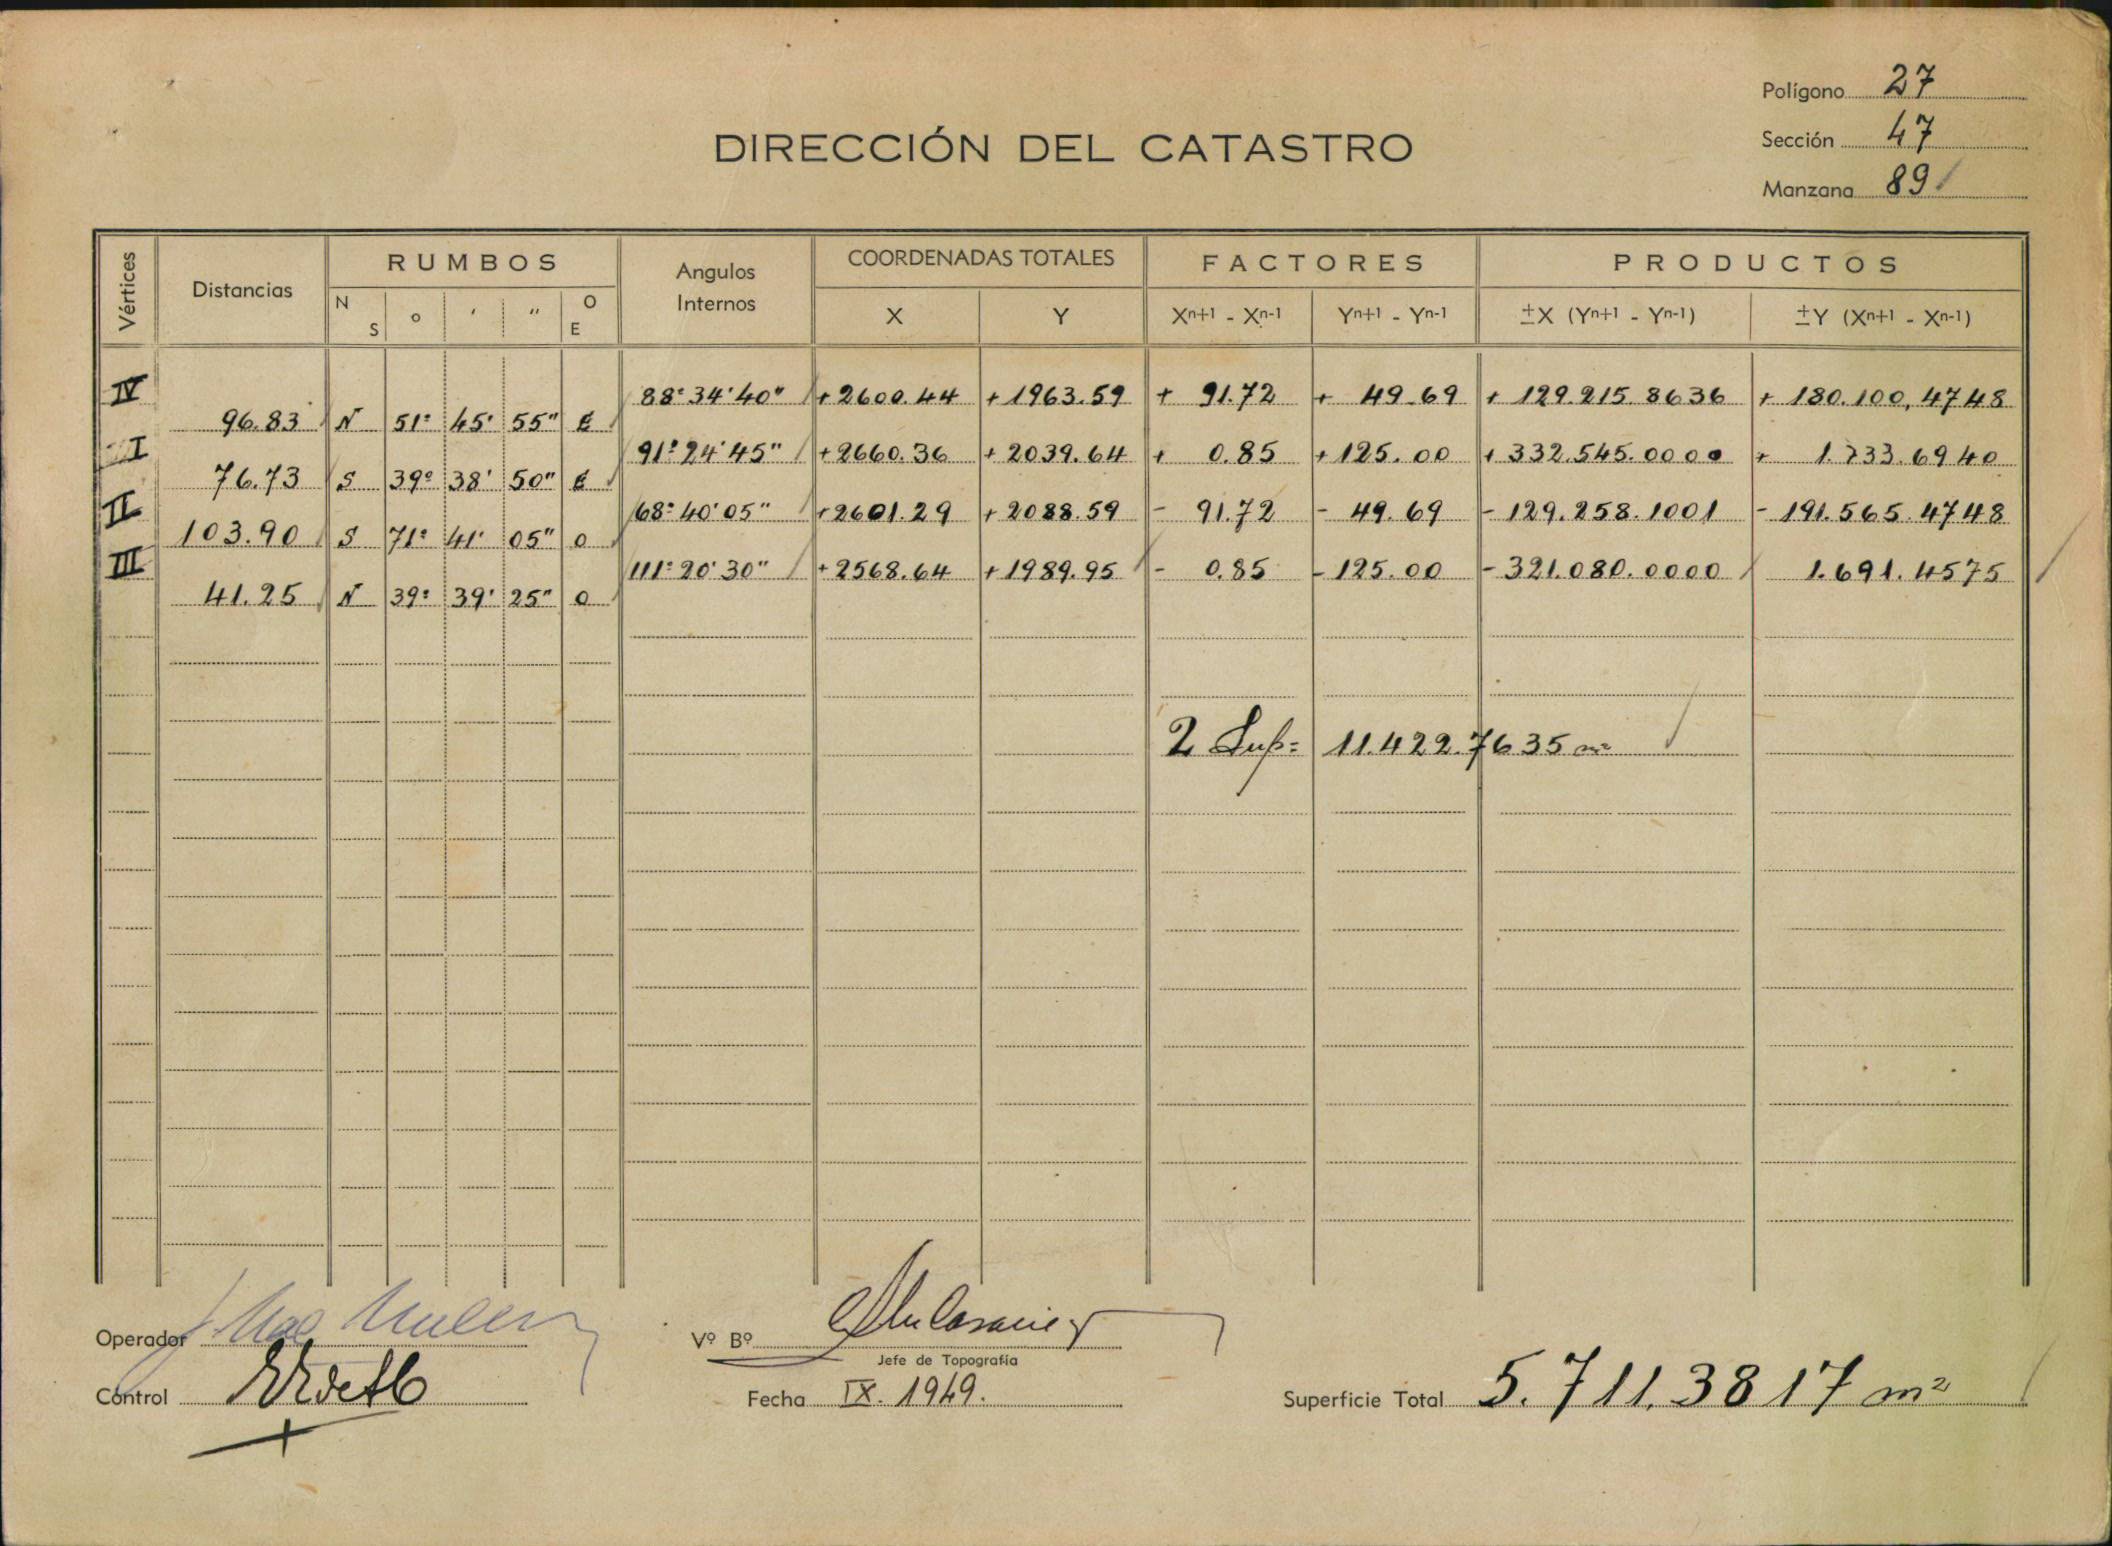 Polígono 27
DIRECCIÓN DEL CATASTRO
Sección 47
Manzana 89
Vértices Distancias RUMBOS Angulos Internos COORDENADAS TOTALES FACTORES PRODUCTOS
N S º ′ ″ O E X Y Xn+1 - Xn-1 Yn+1 - Yn-1 ±X (Yn+1 - Yn-1) ±Y (Xn+1 - Xn-1)
IV 88º34'40" +2600.44 +1963.59 + 91.72 + 49.69 + 129.215.8636 + 180.100,4748
96.83 N 51º 45' 55" E
I 91º24'45" +2660.36 +2039.64 + 0.85 +125.00 +332.545.0000 + 1.733.6940
76.73 S 39º 38' 50" E
II 68º40'05" +2601.29 +2088.59 - 91.72 - 49.69 -129.258.1001 -191.565.4748
103.90 S 71º 41' 05" O
III 111º20'30" +2568.64 +1989.95 - 0.85 -125.00 -321.080.0000 1.691.4575
41.25 N 39º 39' 25" O
2 Sup= 11.422.7635 m²
Operador
Vº Bº
Jefe de Topografía
Control
Fecha IX. 1949.
Superficie Total 5.711.3817 m²